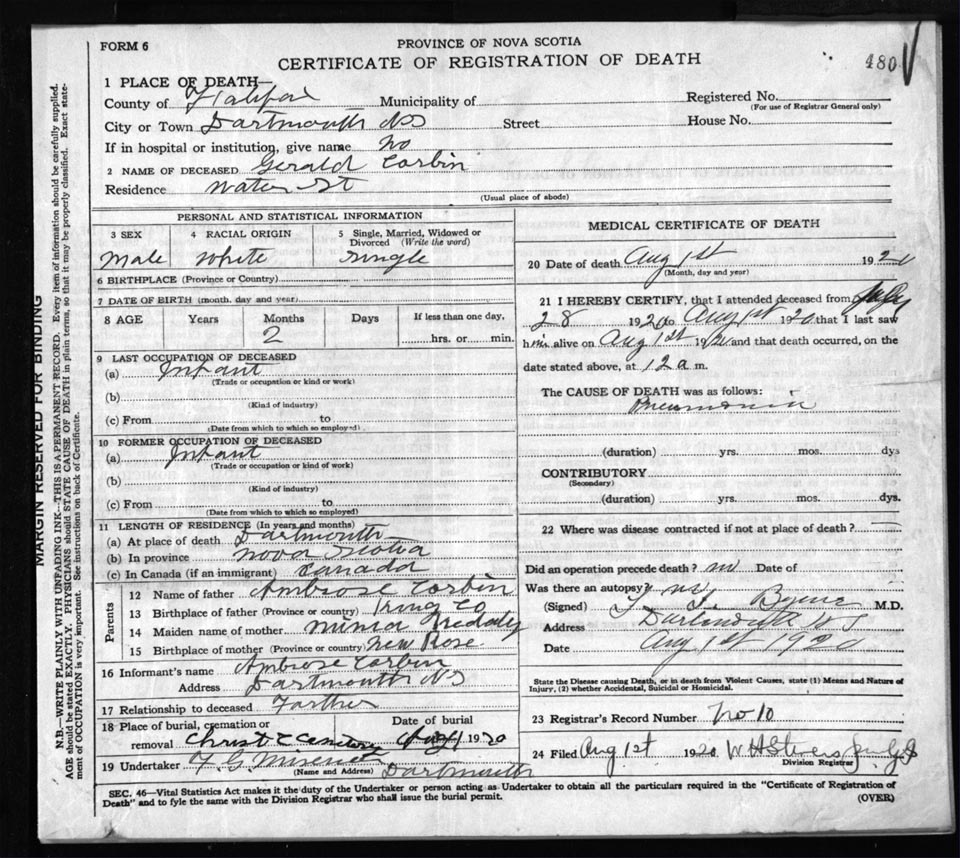 FORM 6
PROVINCE OF NOVA SCOTIA
CERTIFICATE OF REGISTRATION OF DEATH
480
1 PLACE OF DEATH—
County of Halifax Municipality of Registered No.
(For use of Registrar General only)
City or Town Dartmouth NS Street House No.
If in hospital or institution, give name no
2 NAME OF DECEASED Gerald Corbin
Residence Water St
(Usual place of abode)
PERSONAL AND STATISTICAL INFORMATION
3 SEX 4 RACIAL ORIGIN 5 Single, Married, Widowed or Divorced (Write the word)
Male White Single
6 BIRTHPLACE (Province or Country)
7 DATE OF BIRTH (month, day and year)
8 AGE Years Months Days If less than one day,
2 hrs. or min.
9 LAST OCCUPATION OF DECEASED
(a) Infant
(Trade or occupation or kind or work)
(b)
(Kind of industry)
(c) From to
(Date from which to which so employed)
10 FORMER OCCUPATION OF DECEASED
(a) Infant
(Trade or occupation or kind of work)
(b)
(Kind of industry)
(c) From to
(Date from which to which so employed)
11 LENGTH OF RESIDENCE (In years and months)
(a) At place of death Dartmouth
(b) In province Nova Scotia
(c) In Canada (if an immigrant) Canada
Parents
12 Name of father Ambrose Corbin
13 Birthplace of father (Province or country) King Co
14 Maiden name of mother
15 Birthplace of mother (Province or country) New Ross
16 Informant's name Ambrose Corbin
Address Dartmouth NS
17 Relationship to deceased Farther
18 Place of burial, cremation or Date of burial
removal Christ C Cemetery Aug 1 1920
19 Undertaker F. G. Dartmouth
(Name and Address)
MEDICAL CERTIFICATE OF DEATH
20 Date of death Aug 1st 1920
(Month, day and year)
21 I HEREBY CERTIFY, that I attended deceased from July
28 1920 to Aug 1st 1920 that I last saw
him alive on Aug 1st 1920 and that death occurred, on the
date stated above, at 12 a m.
The CAUSE OF DEATH was as follows:
Pneumonia
(duration) yrs. mos. dys
CONTRIBUTORY
(Secondary)
(duration) yrs. mos. dys.
22 Where was disease contracted if not at place of death?
Did an operation precede death? no Date of
Was there an autopsy? no
(Signed) Byrne M.D.
Address Dartmouth NS
Date Aug 1st 1920
State the Disease causing Death, or in death from Violent Causes, state (1) Means and Nature of
Injury, (2) whether Accidental, Suicidal or Homicidal.
23 Registrar's Record Number No 10
24 Filed Aug 1st 1920 W H Stevens
Division Registrar
SEC. 46—Vital Statistics Act makes it the duty of the Undertaker or person acting as Undertaker to obtain all the particulars required in the "Certificate of Registration of
Death" and to fyle the same with the Division Registrar who shall issue the burial permit.
(OVER)
MARGIN RESERVED FOR BINDING
N.B.—WRITE PLAINLY WITH UNFADING INK—THIS IS A PERMANENT RECORD. Every item of information should be carefully supplied.
AGE should be stated EXACTLY. PHYSICIANS should STATE CAUSE OF DEATH in plain terms, so that it may be properly classified. Exact state-
ment of OCCUPATION is very important. See instructions on back of Certificate.